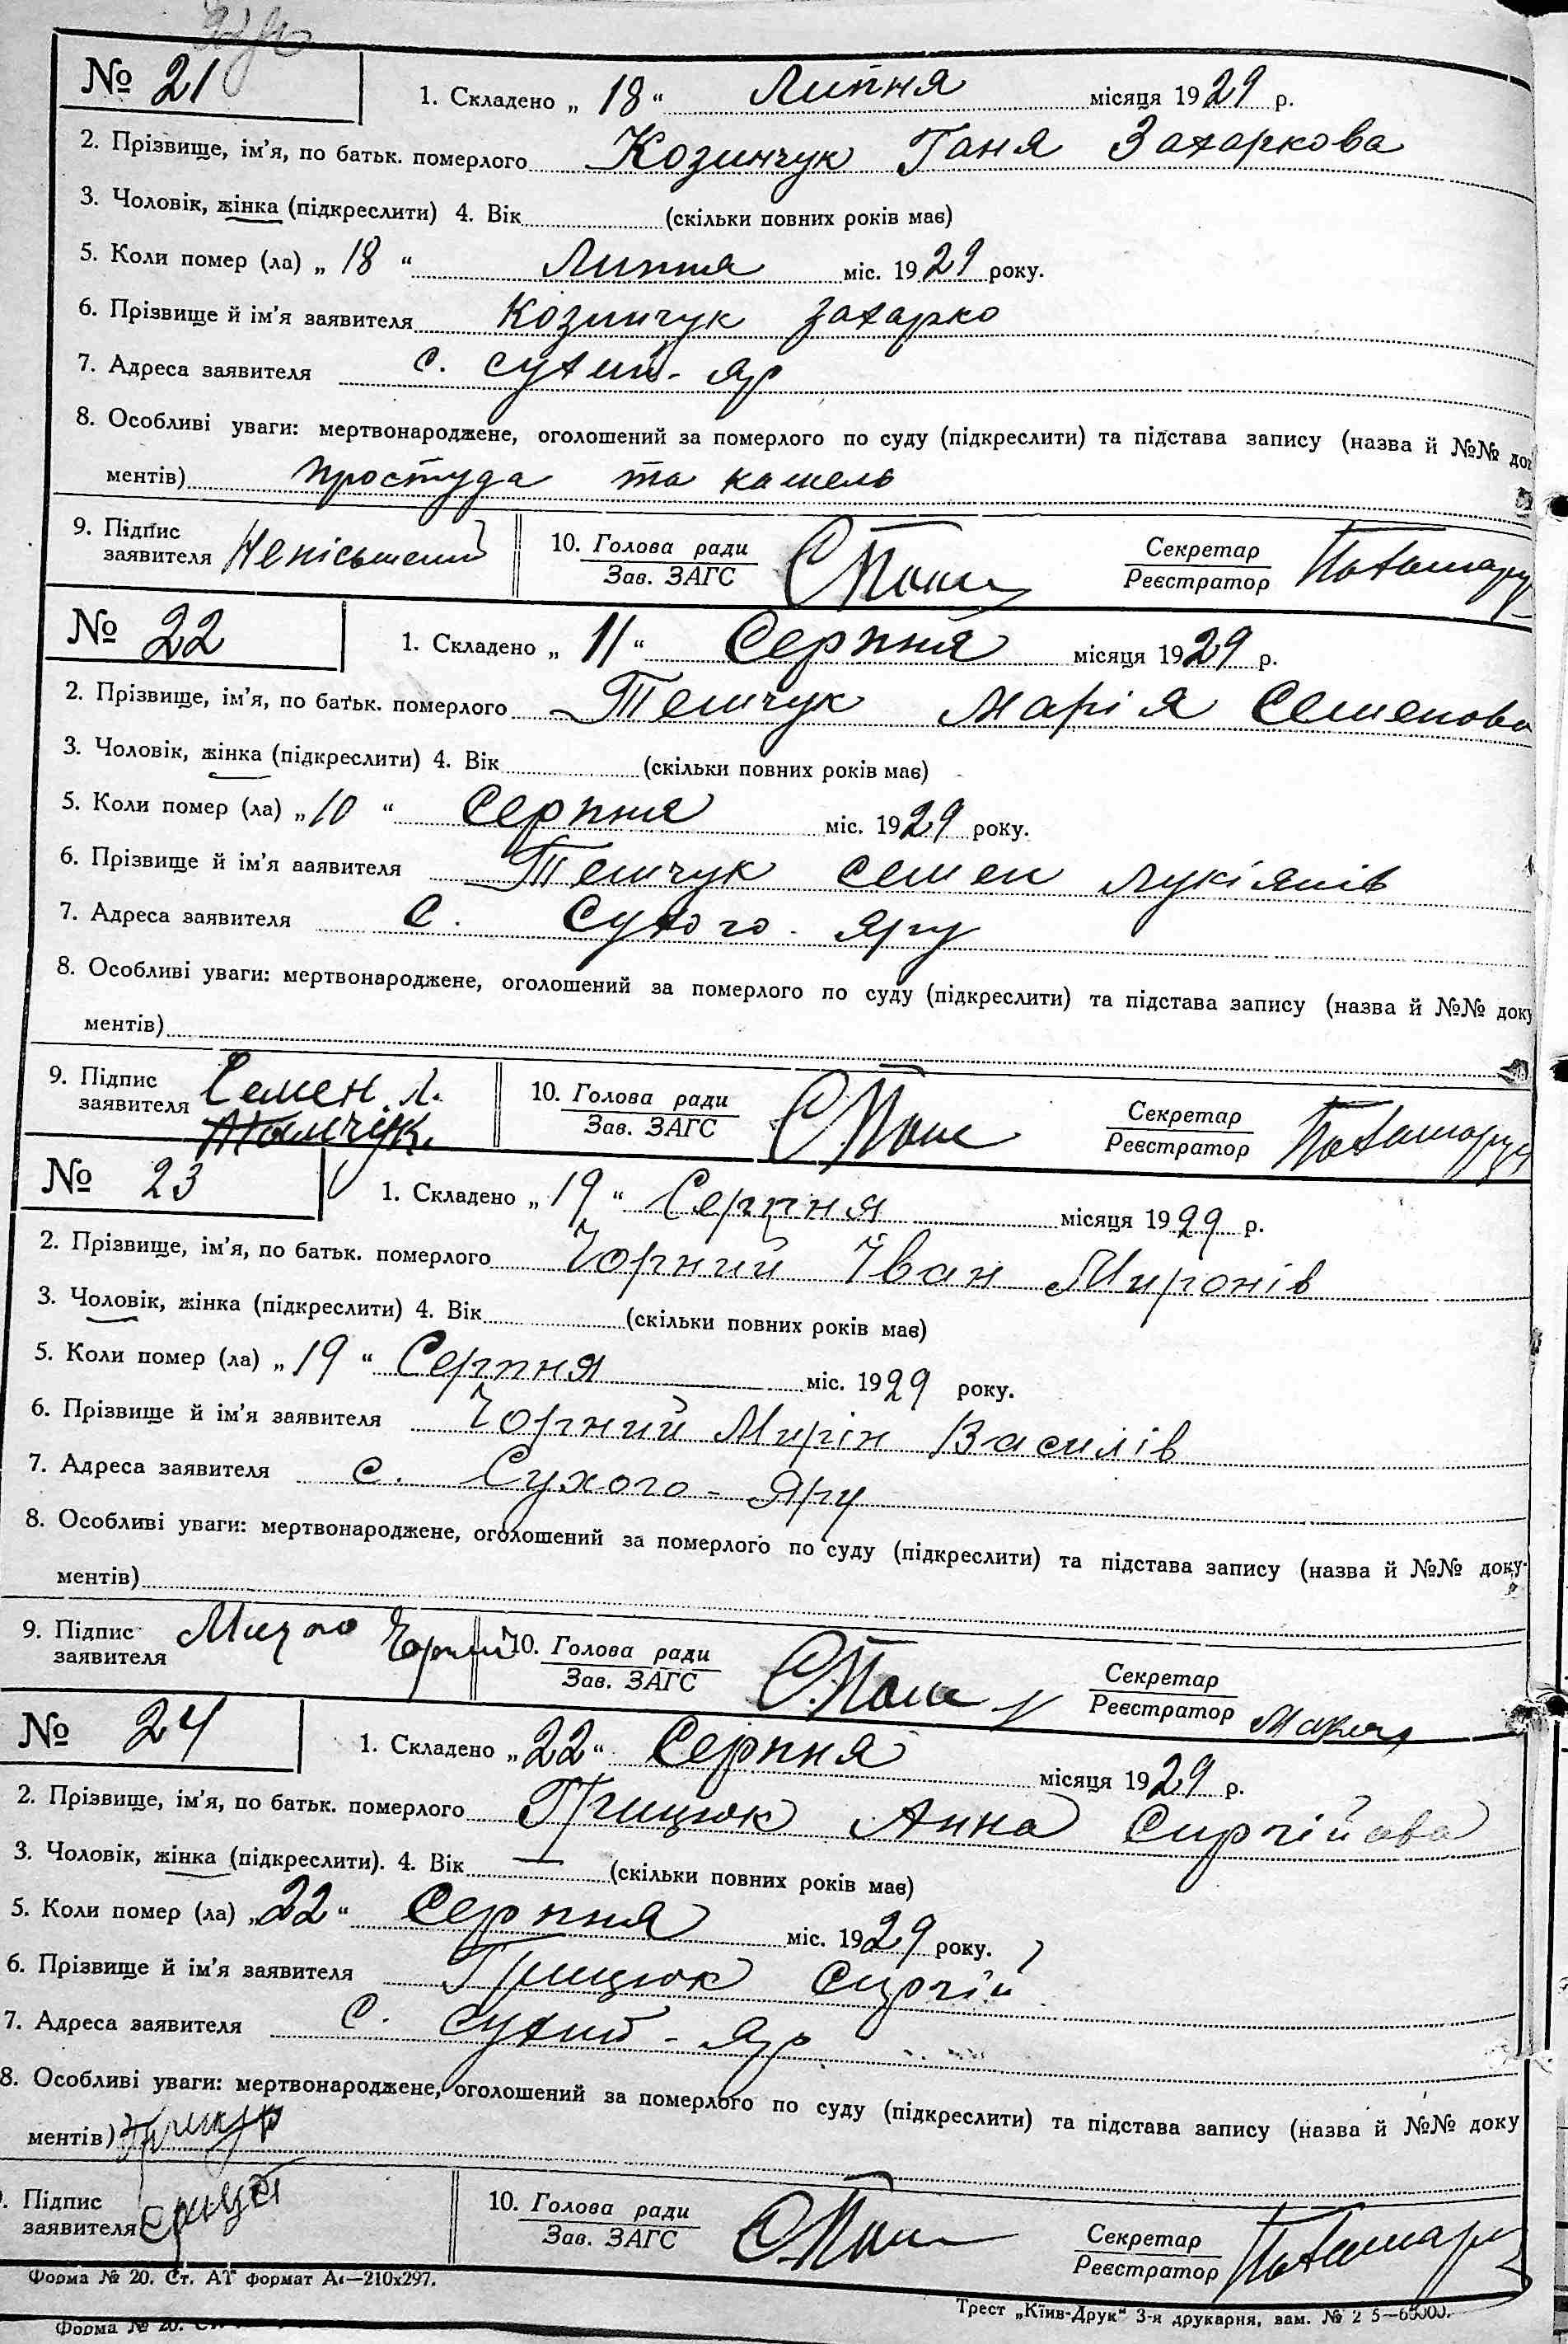 № 21
1. Складено „ 18 “ Липня місяця 1929 р.
2. Прізвище, ім’я, по батьк. померлого Козинчук Ганя Захаркова
3. Чоловік, жінка (підкреслити) 4. Вік (скільки повних років має)
5. Коли помер (ла) „ 18 “ Липня міс. 1929 року.
6. Прізвище й ім’я заявителя Козинчук Захарко
7. Адреса заявителя с. Сухий-Яр
8. Особливі уваги: мертвонароджене, оголошений за померлого по суду (підкреслити) та підстава запису (назва й №№ док
ментів) простуда та кашель
9. Підпис заявителя Неписьмений
10. Голова ради
Зав. ЗАГС
Секретар
Реєстратор
№ 22
1. Складено „ 11 “ Серпня місяця 1929 р.
2. Прізвище, ім’я, по батьк. померлого Темчук Марія Семенова
3. Чоловік, жінка (підкреслити) 4. Вік (скільки повних років має)
5. Коли помер (ла) „ 10 “ Серпня міс. 1929 року.
6. Прізвище й ім’я ааявителя Темчук Семен Лукіянів
7. Адреса заявителя с. Сухого-Яру
8. Особливі уваги: мертвонароджене, оголошений за померлого по суду (підкреслити) та підстава запису (назва й №№ доку
ментів)
9. Підпис заявителя Семен. Л.
10. Голова ради
Зав. ЗАГС
Секретар
Реєстратор
№ 23
1. Складено „ 19 “ Серпня місяця 1929 р.
2. Прізвище, ім’я, по батьк. померлого Чорний Іван Миронів
3. Чоловік, жінка (підкреслити) 4. Вік (скільки повних років має)
5. Коли помер (ла) „ 19 “ Серпня міс. 1929 року.
6. Прізвище й ім’я заявителя Чорний Мирін Василів
7. Адреса заявителя с. Сухого-Яру
8. Особливі уваги: мертвонароджене, оголошений за померлого по суду (підкреслити) та підстава запису (назва й №№ доку-
ментів)
9. Підпис заявителя Чорний
10. Голова ради
Зав. ЗАГС
Секретар
Реєстратор
№ 24
1. Складено „ 22 “ Серпня місяця 1929 р.
2. Прізвище, ім’я, по батьк. померлого Грицюк Анна Сиргійова
3. Чоловік, жінка (підкреслити). 4. Вік — (скільки повних років має)
5. Коли помер (ла) „ 22 “ Серпня міс. 1929 року.
6. Прізвище й ім’я заявителя Грицюк Сиргій
7. Адреса заявителя с. Сухий-Яр
8. Особливі уваги: мертвонароджене, оголошений за померлого по суду (підкреслити) та підстава запису (назва й №№ доку
ментів)
. Підпис заявителя
10. Голова ради
Зав. ЗАГС
Секретар
Реєстратор
Форма № 20. Ст. АТ формат А₄—210x297.
Трест „Київ-Друк“ 3-я друкарня, вам. № 2 5—65000.
Форма № 20.